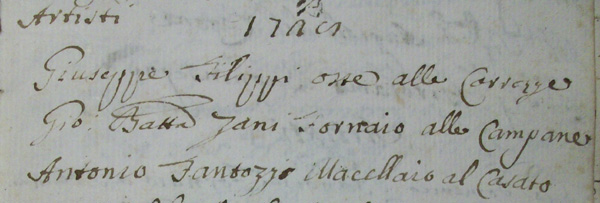 Artisti
Giuseppe Filippi oste alle Carrozze
Gio: Batta Zani Fornaio alle Campane
Antonio Fantozzi Macellaio al Casato